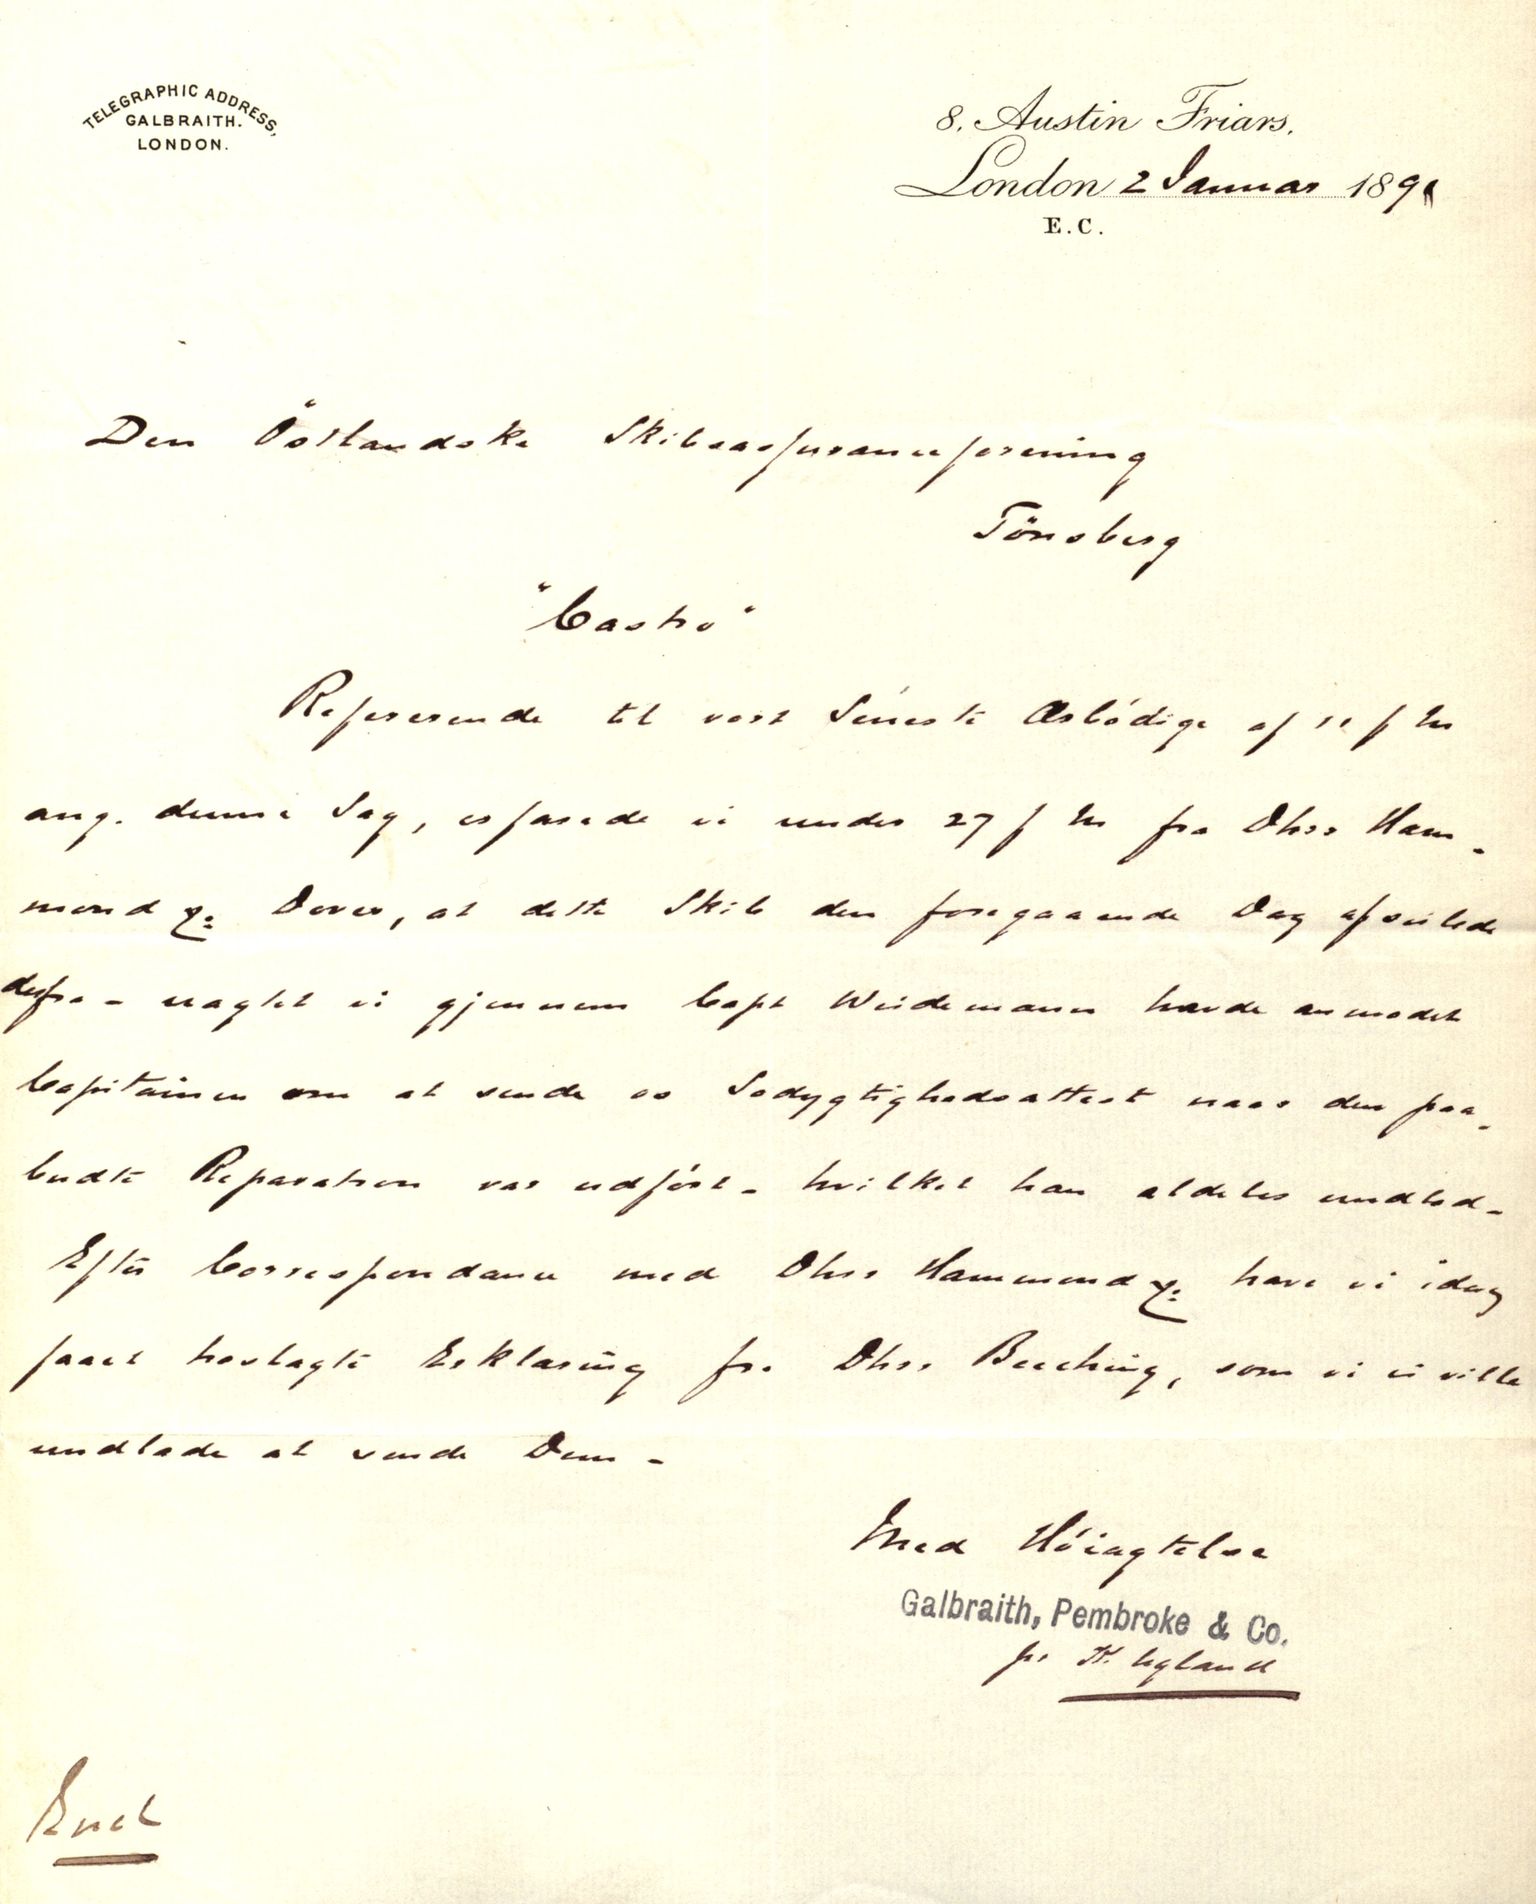 TELEGRAPHIC ADDRESS,
GALBRAITH.
LONDON.
8, Austin Friars,
London 2 Januar 1891
E.C.
Den Östlandske Skibsassuranceforening
Tönsberg
"Castro"
Refererende til vort Seneste Ærbödige af 11 f M
ang. denne Sag, erfarede vi under 27 f M fra Dhrr Ham-
mond Dover, at dette Skib den foregaaende Dag afseilede
derfra - uagtet vi gjennem Capt Weidemann havde anmodet
Capitainen om at sende os Sødygtighedsattest naar den paa-
budte Reparation var udfört - hvilket han aldeles undlod -
Efter Correspondance med Dhrr Hammond have vi idag
faaet hoslagte Erklæring fra Dhrr Beeching, som vi ei ville
undlade at sende Dem -
Med Höiagtelse
Galbraith, Pembroke & Co.
pr
Encl